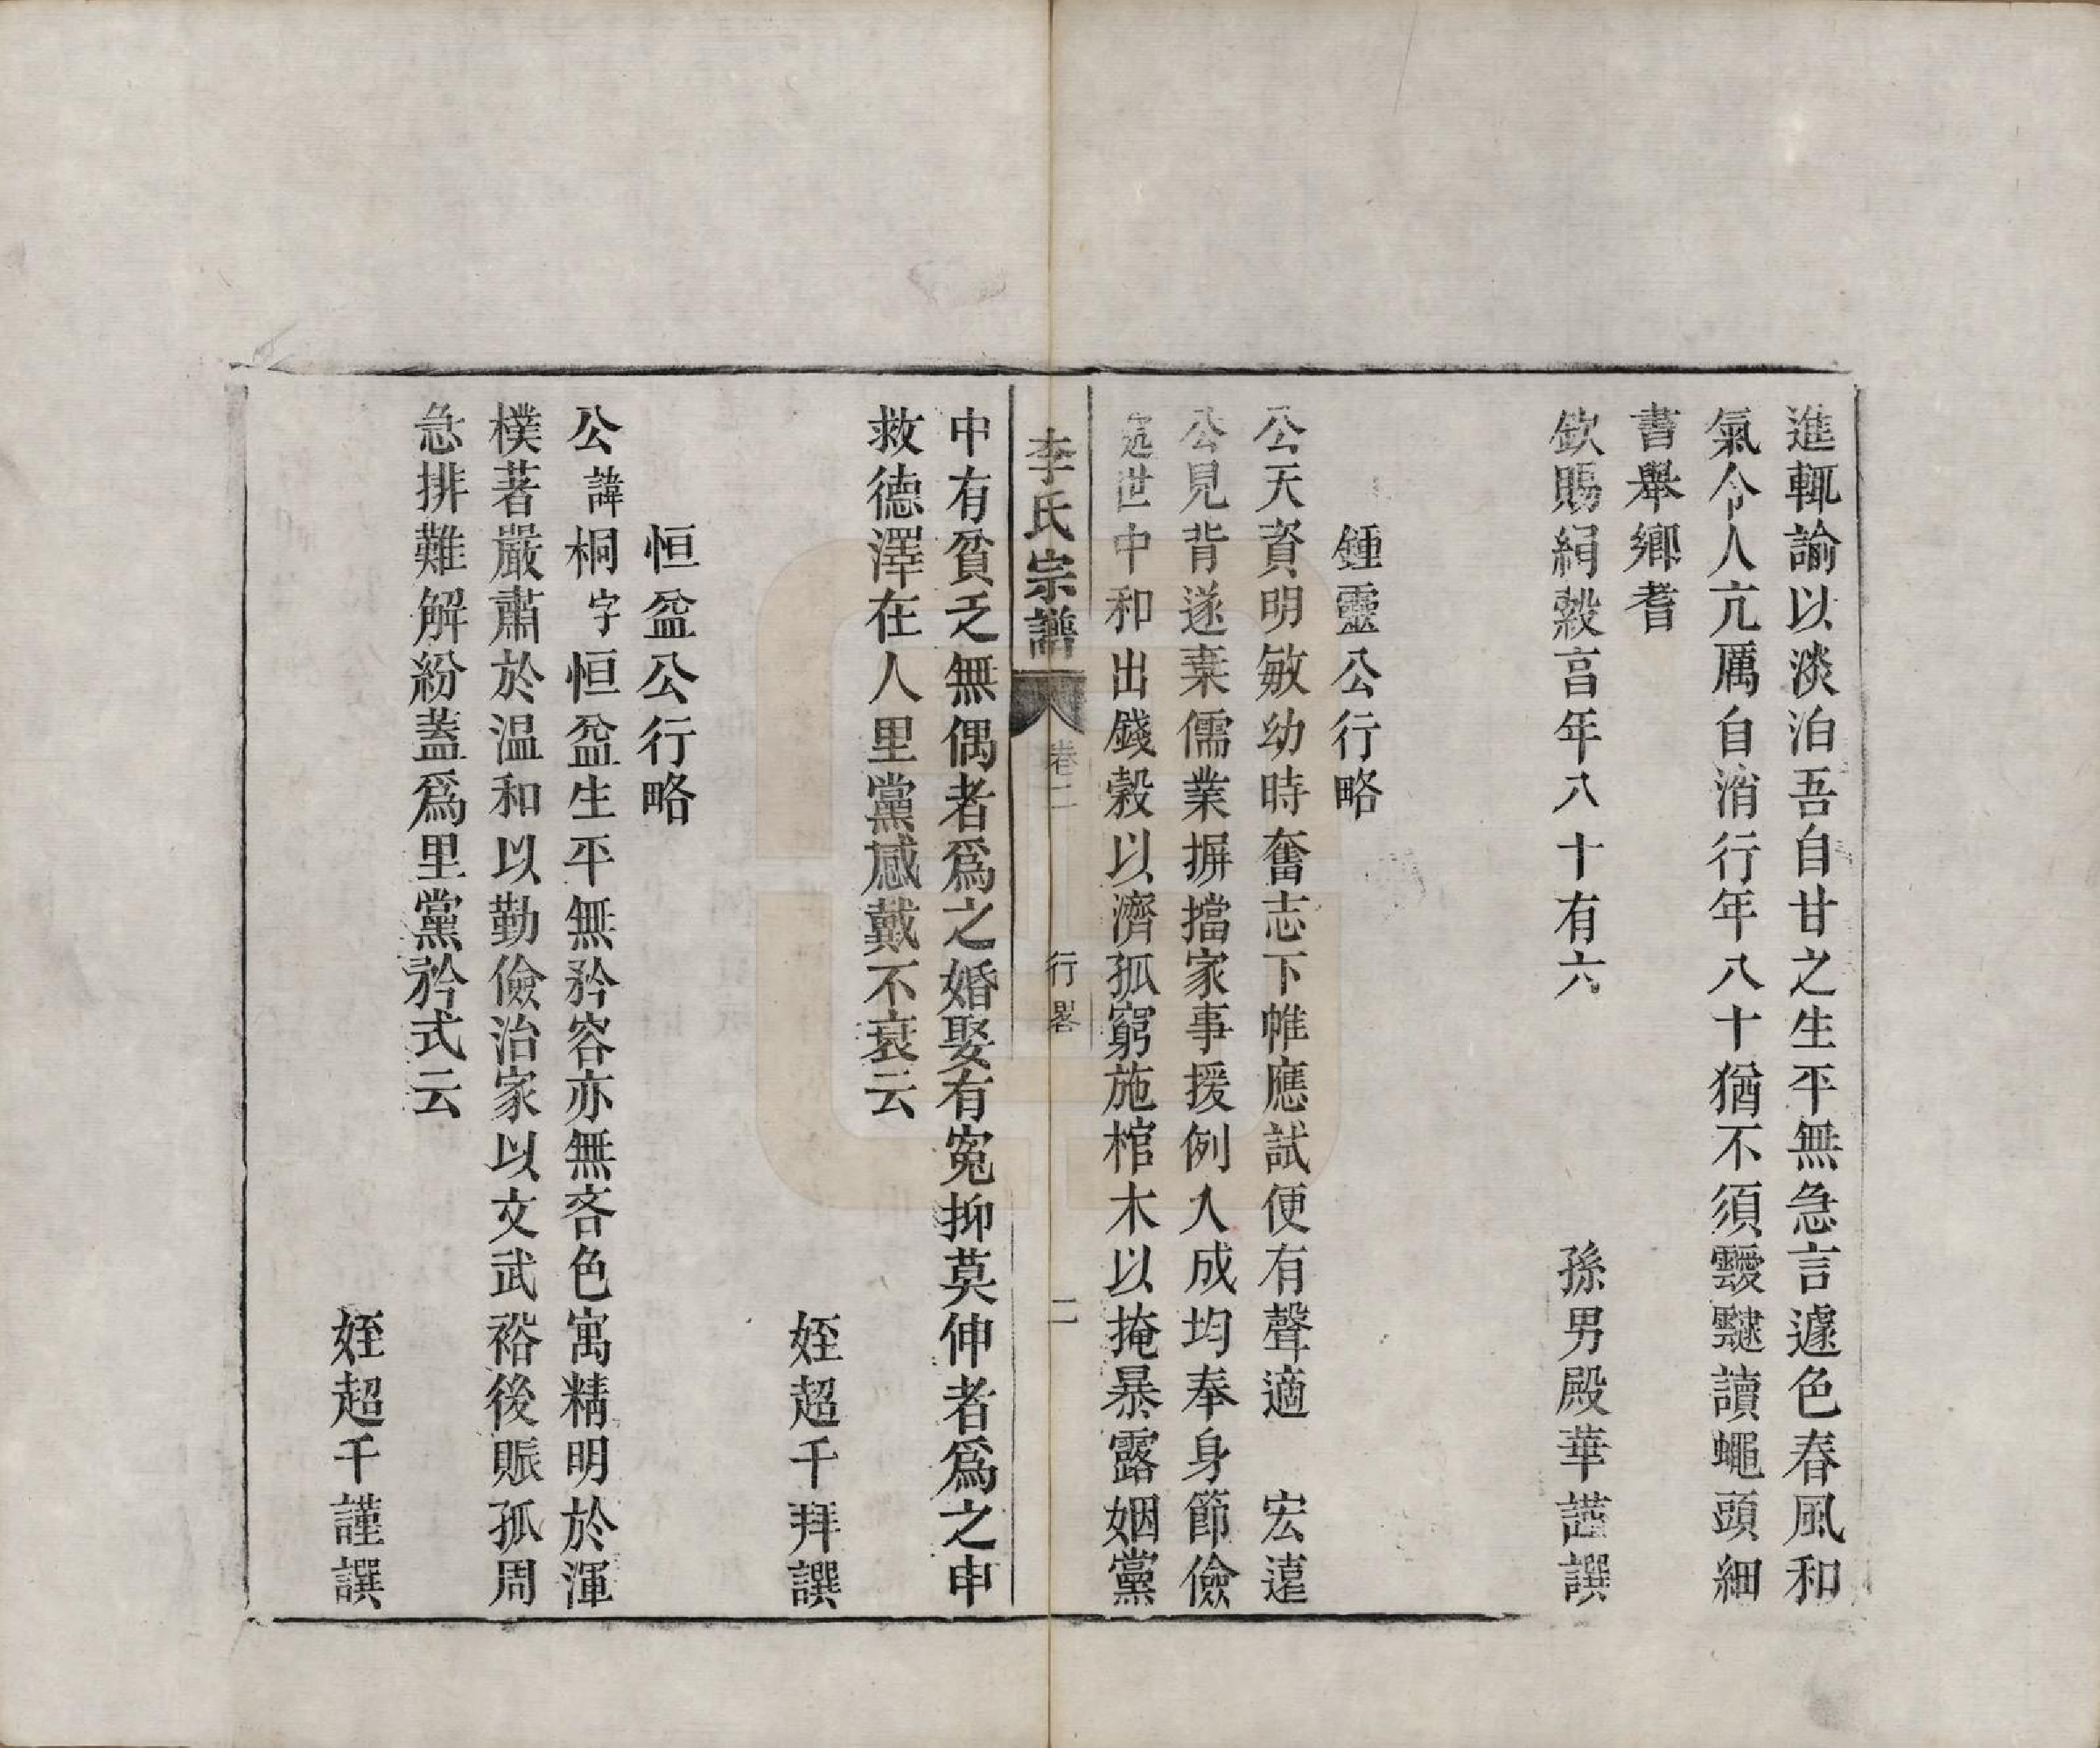 進輒諭以淡泊吾自甘之生平無急言遽色春風和
氣令人亢厲自消行年八十猶不須靉靆讀蠅頭細
書舉鄉耆
欽賜絹穀享年八十有六　　　孫男殿華謹譔
鍾靈公行略
公天資明敏幼時奮志下帷應試便有聲適　宏遠
公見背遂棄儒業摒擋家事援例入成均奉身節儉
近世中和出錢穀以濟孤窮施棺木以掩暴露姻黨
李氏宗譜　卷二　行畧　二
中有貧乏無偶者爲之婚娶有寃抑莫伸者爲之申
救德澤在人里黨感戴不衰云
姪超千拜譔
恒盆公行略
公諱桐字恒盆生平無矜容亦無吝色寓精明於渾
樸著嚴肅於温和以勤儉治家以文武裕後賑孤周
急排難解紛蓋爲里黨矜式云
姪超千謹譔